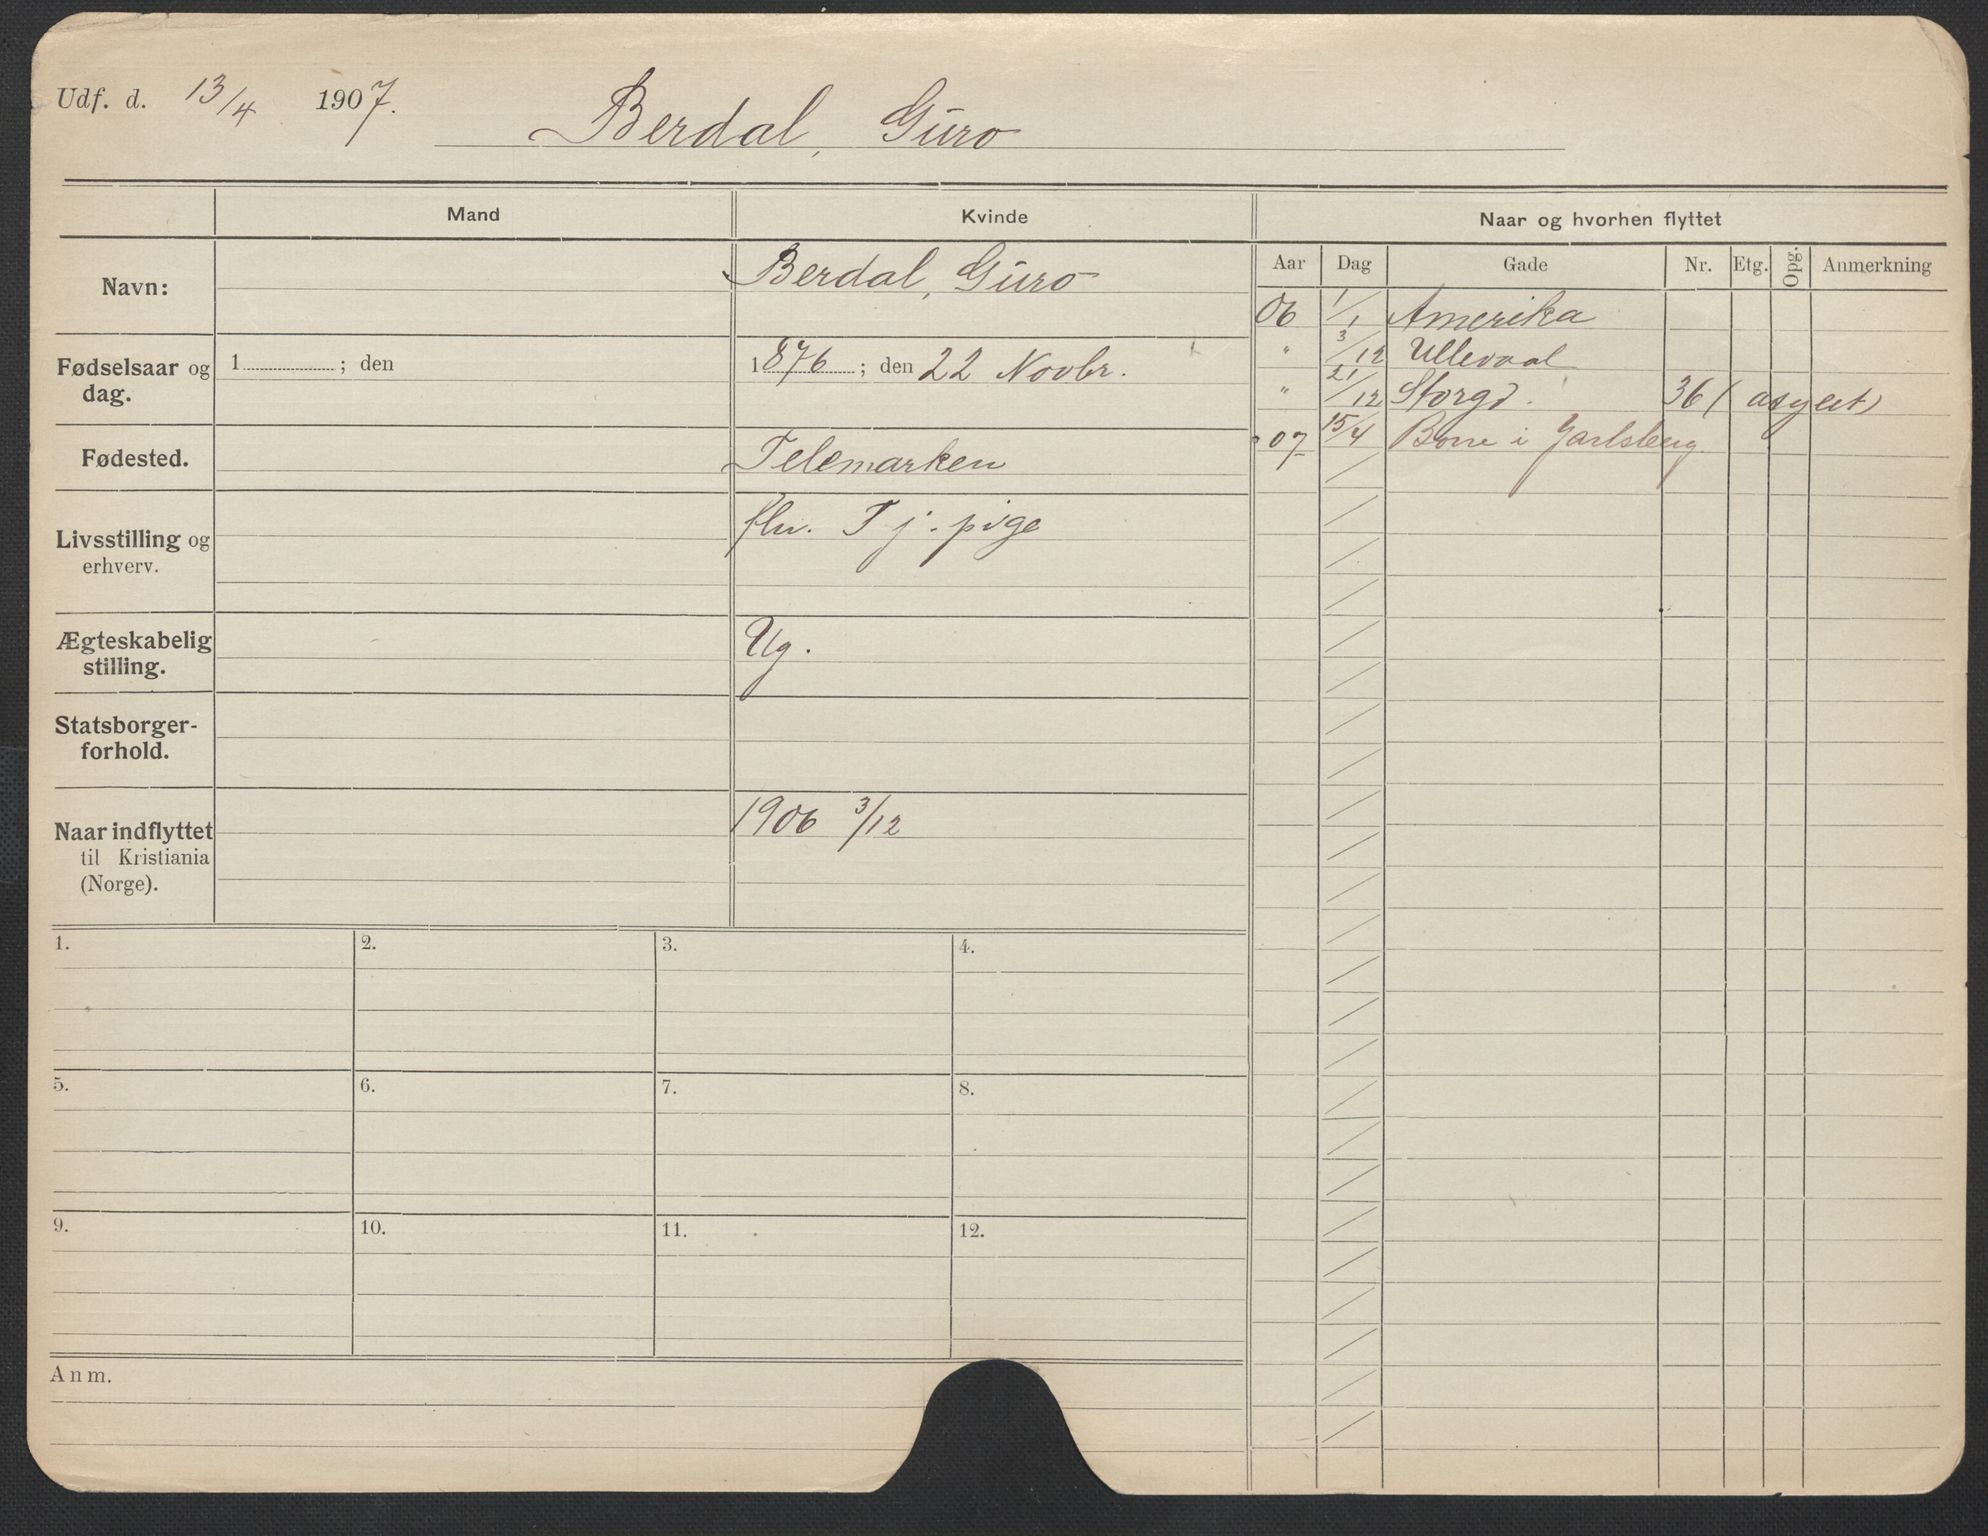 Udf. d. 13/4 1907.
Berdal, Guro
Mand Kvinde Naar og hvorhen flyttet
Aar Dag Gade Nr. Etg. Opg. Anmerkning
Navn: Berdal, Guro
06 1/1 Amerika
" 3/12 Ullevaal
Fødselsaar og dag. 1 ; den 1876 ; den 22 Novbr.
" 21/12 Storgd. 36 (asylet)
07 15/4 Borre i Jarlsberg
Fødested. Telemarken
Livsstilling og erhverv. flv. Tj. pige
Ægteskabelig stilling. Ug.
Statsborger-
forhold.
Naar indflyttet
til Kristiania
(Norge).
1906 3/12
1. 2. 3. 4.
5. 6. 7. 8.
9. 10. 11. 12.
Anm.